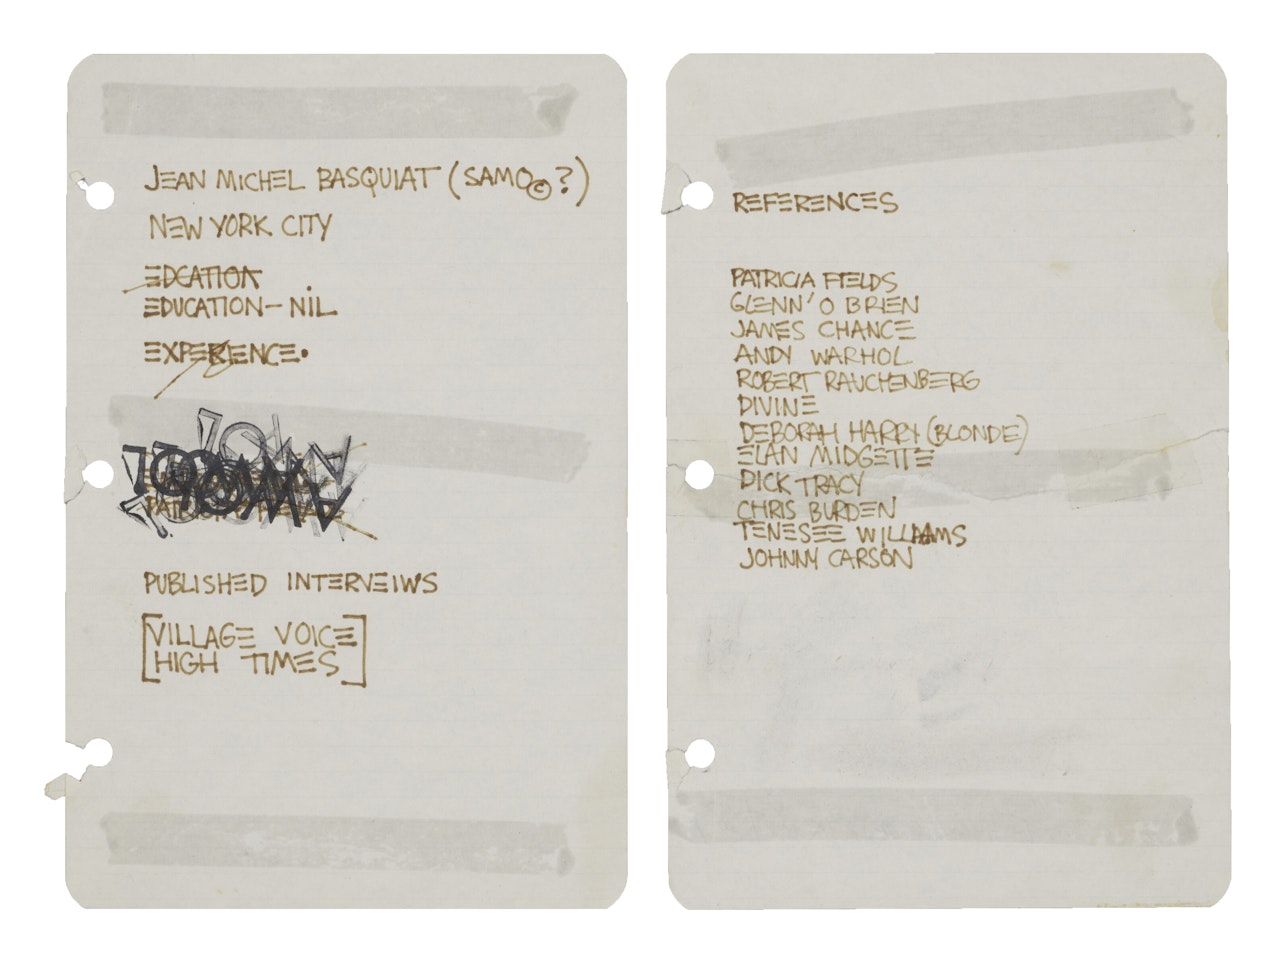 JEAN MICHEL BASQUIAT (SAMO©?)
NEW YORK CITY
EDCATION
EDUCATION – NIL
EXPERIENCE.
PUBLISHED INTERVEIWS
[VILLAGE VOICE
HIGH TIMES]
REFERENCES
PATRICIA FIELDS
GLENN' O BRIEN
JAMES CHANCE
ANDY WARHOL
ROBERT RAUCHENBERG
DIVINE
DEBORAH HARRY (BLONDE)
ELAN MIDGETTE
DICK TRACY
CHRIS BURDEN
TENESEE WILLIAMS
JOHNNY CARSON